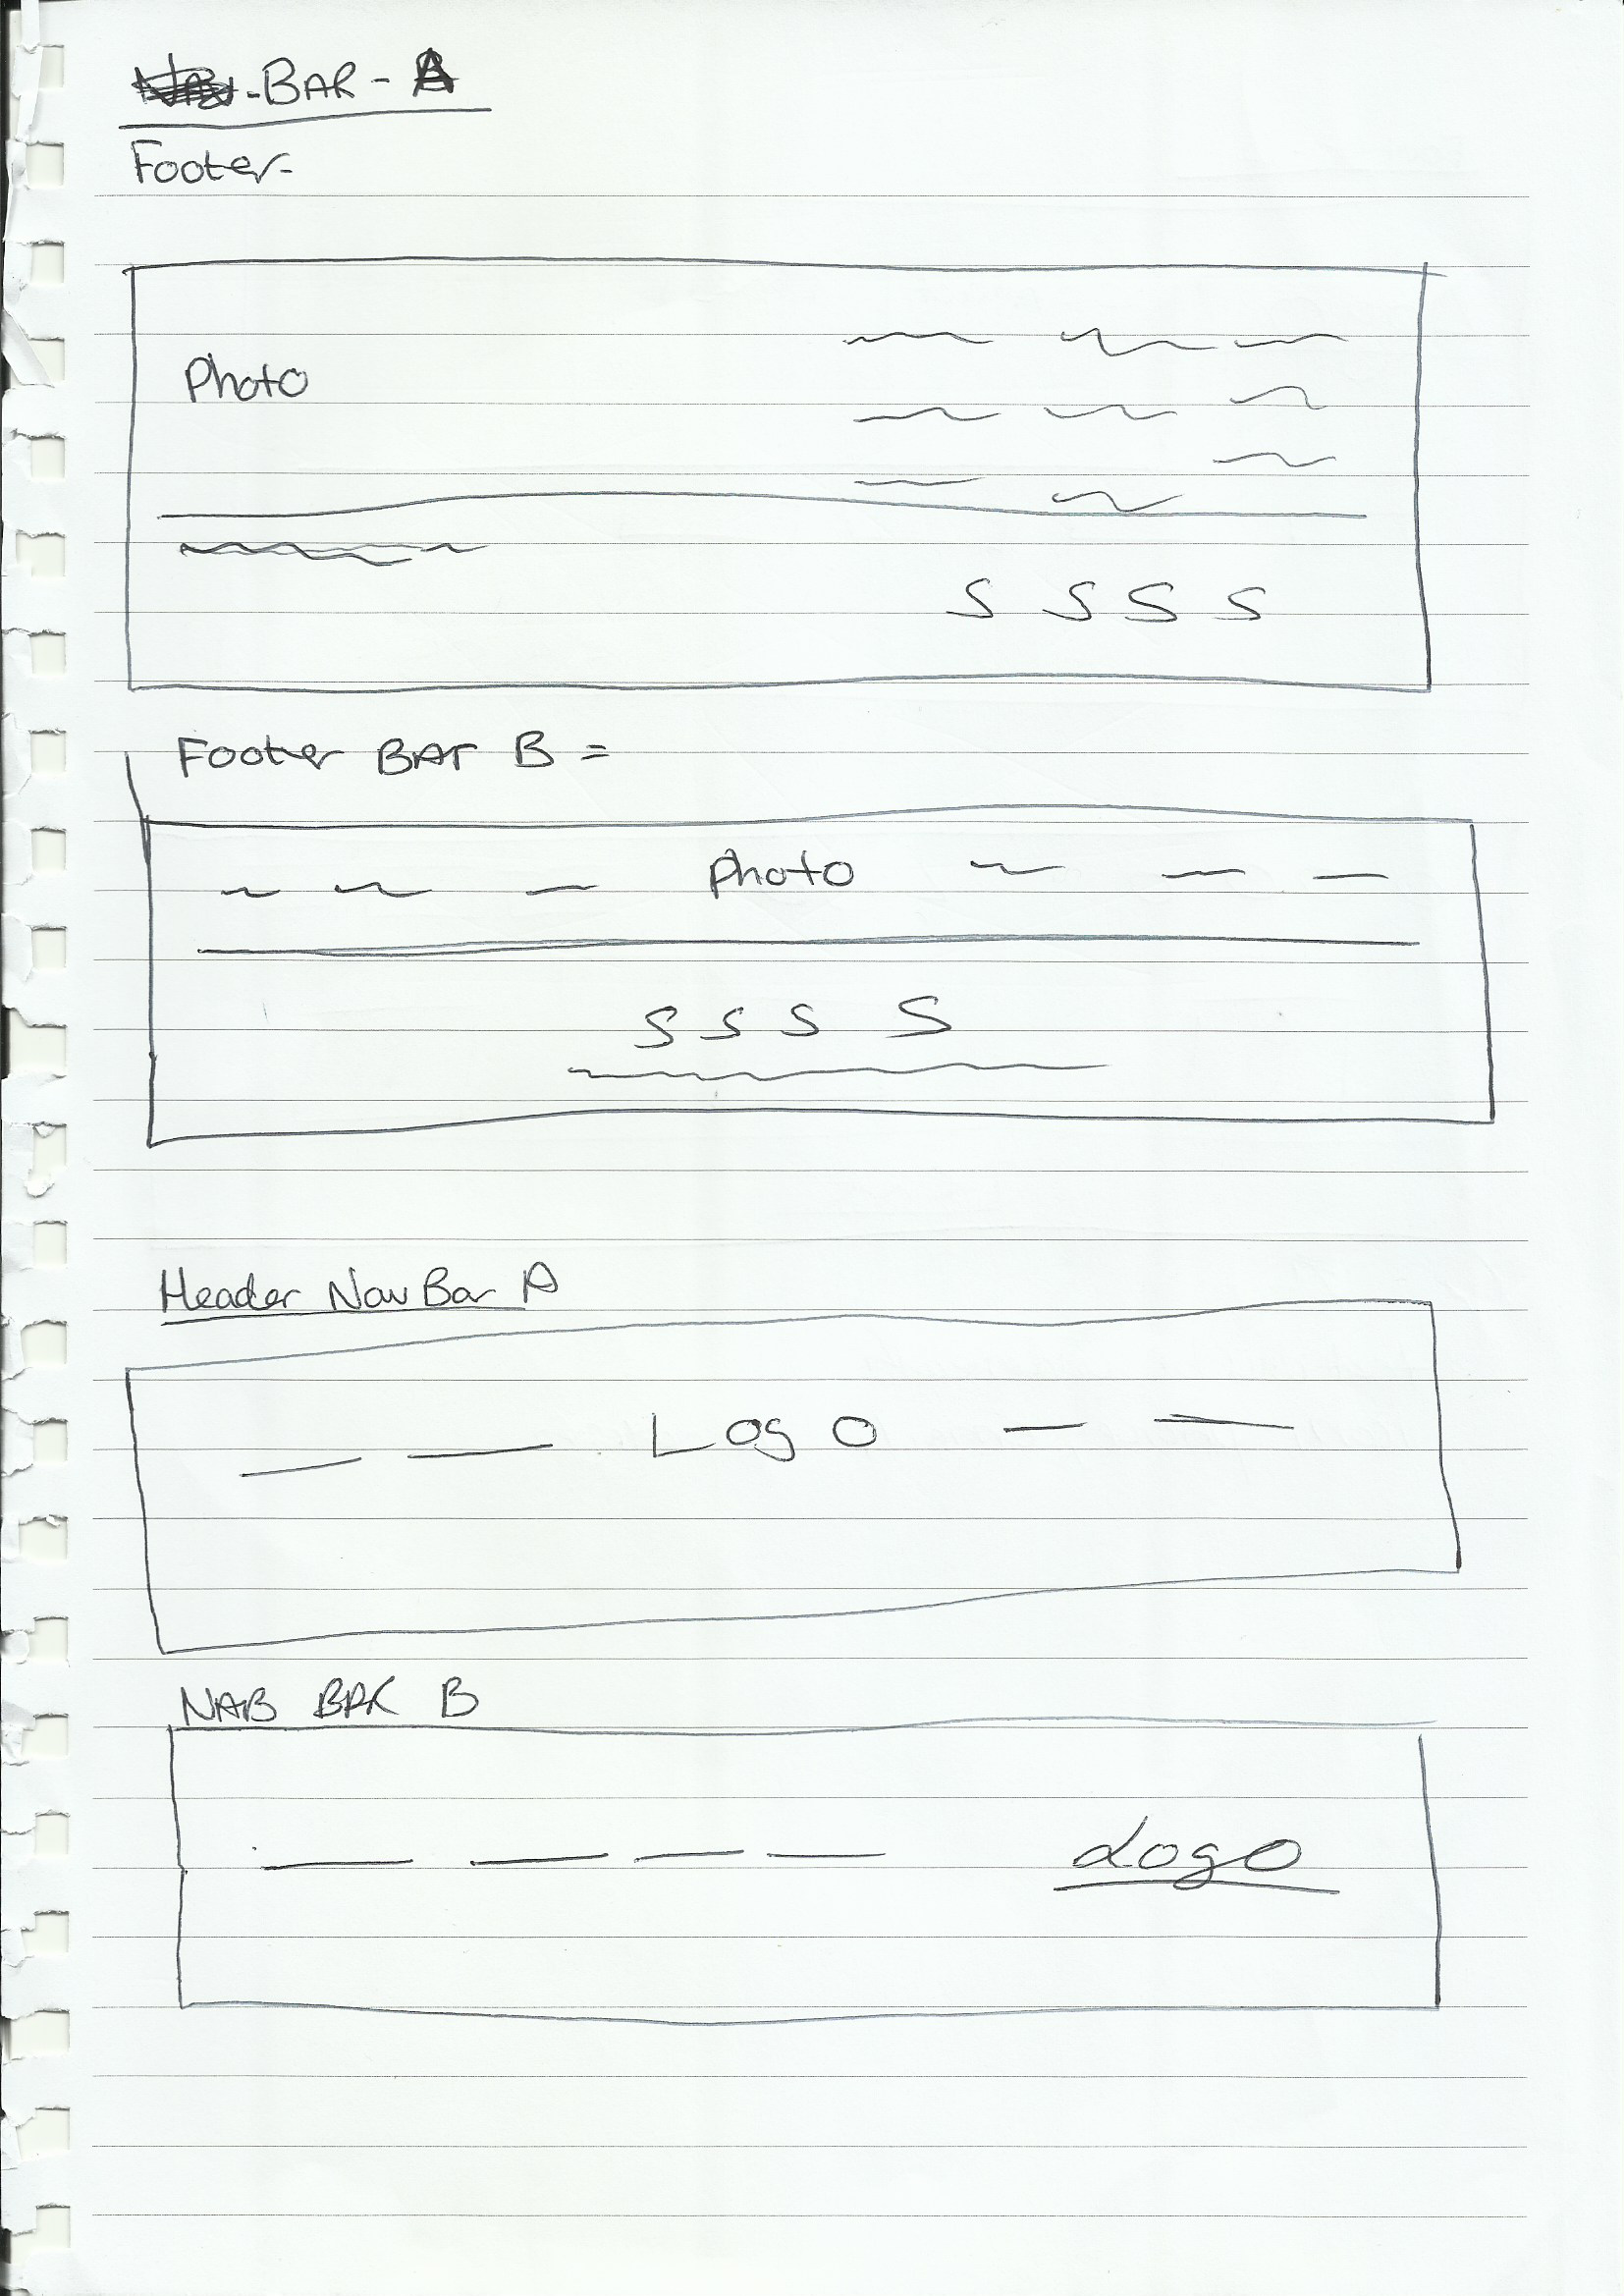 -BAR - A
Footer-
Photo
S S S S
Footer BAr B =
Photo
S S S S
Header Nav Bar A
LogO
NAB BAR B
Logo